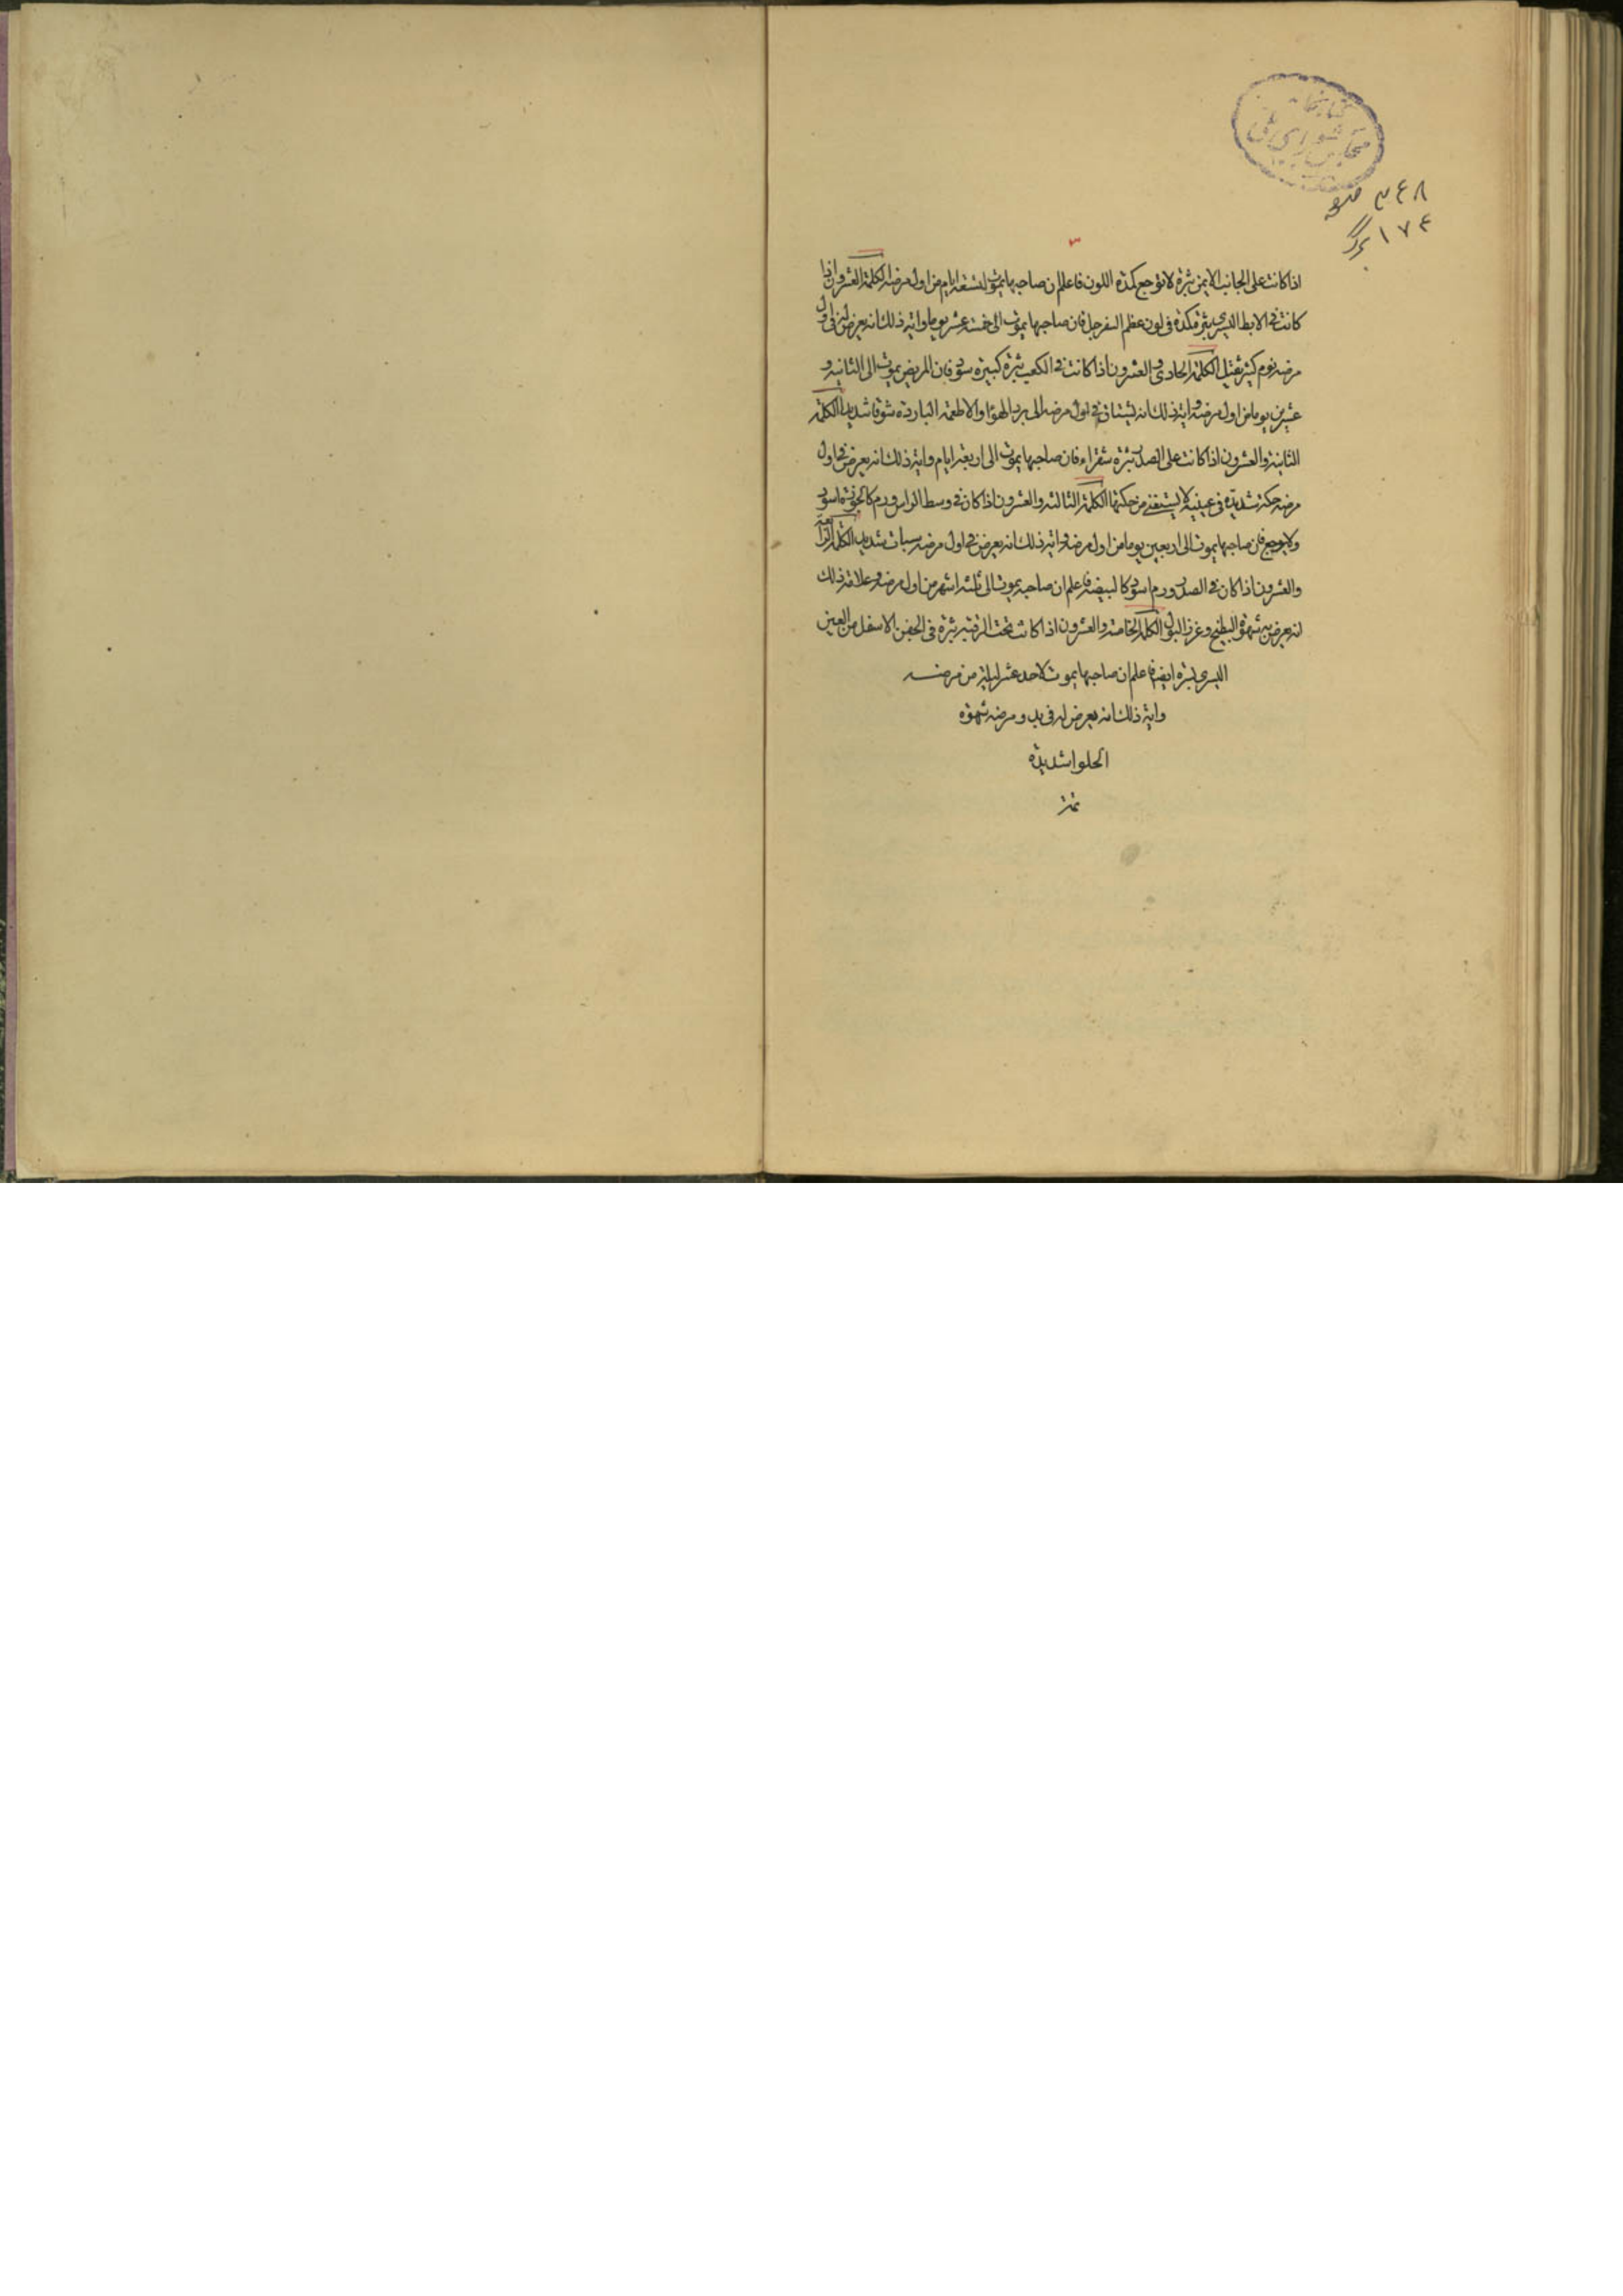 كتابخانه
مجلس شورای ملی
٣٤٨ صفحه
١٧٤ برگ
٣
اذا كانت على الجانب الايمن بثرة لا توجع كمدة اللون فاعلم ان صاحبها يموت لتسعة ايام من اول مرضه الكلمة العشرون اذا
كانت فى الابط اليسرى بثرة مكدة فى لون عظم السفرجل فان صاحبها يموت الى خمسة عشر يوما واية ذلك انه يعرض له فى اول
مرضه نوم كثير ثقيل الكلمة الحادى والعشرون اذا كانت فى الكعب بثرة كبيرة سود فان المريض يموت الى الثانية و
عشرين يوما من اول مرضه واية ذلك انه يشتاق فى اول مرضه الى برد الهوا والاطعمة الباردة شوقا شديدا الكلمة
الثانية والعشرون اذا كانت على الصدر بثرة شقراء فان صاحبها يموت الى اربعة ايام واية ذلك انه يعرض فى اول
مرضه حكة شديدة فى عينيه لا يستغنى من حكتها الكلمة الثالثة والعشرون اذا كان فى وسط الراس ورم كالجوزة اسود
ولا يوجع فان صاحبها يموت الى اربعين يوما من اول مرضه واية ذلك انه يعرض فى اول مرضه سبات شديد الكلمة الرابعة
والعشرون اذا كان فى الصدر ورم اسود كالبيضة فاعلم ان صاحبه يموت الى ثلثة اشهر من اول مرضه وعلامة ذلك
انه يعرض به شهوة البطيخ وغزر البول الكلمة الخامسة والعشرون اذا كانت تحت الرقبة بثرة فى الجفن الاسفل من العين
اليسرى بثرة ايضا فاعلم ان صاحبها يموت لاحد عشر ليلة من مرضه
واية ذلك انه يعرض له فى بدو مرضه شهوة
الحلوا شديدة
تمت